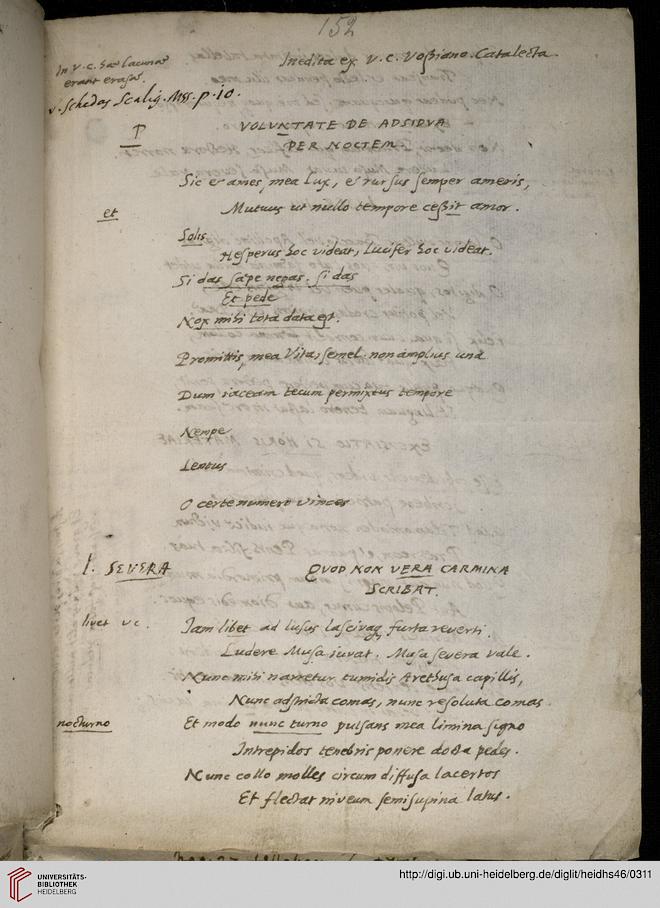 152
In v.c. hae lacunae
erant erasae.
Inedita ex V.C. Voßiano. Catalecta
v. schedas Scalig. Mss. p. 10.
VOLUNTATE DE ADSIDVA
PER NOCTEM.
Sic et ames, mea lux, et rursus semper ameris,
et
Mutuus ut nullo tempore ceßit amor.
Solis
Hesperus hoc videat, Lucifer hoc videat.
Si das sape negas. si das
Et pede
Nox mihi tota data est.
Promittis, mea Vita, semel. non amplius una
Dum iaceam tecum permixtus tempore
Nempe
Lentus
O certe numero vinces
l. SEVERA
QVOD NON VERA CARMINA
SCRIBAT.
liuet vc.
Iam libet ad lusus lascivaq furta reverti.
Ludere Musa iuvat. Musa severa vale.
Nunc mihi narretur tumidis Arethusa capillis,
Nunc adstricta comas, nunc resoluta comas
nocturno
Et modo nunc turno pulsans mea limina signo
Intrepidos tenebris ponere docta pedes.
Nunc collo molles circum diffusa lacertos
Et flectat niveum semisupina latus.
UNIVERSITÄTS-
BIBLIOTHEK
HEIDELBERG
http://digi.ub.uni-heidelberg.de/diglit/heidhs46/0311